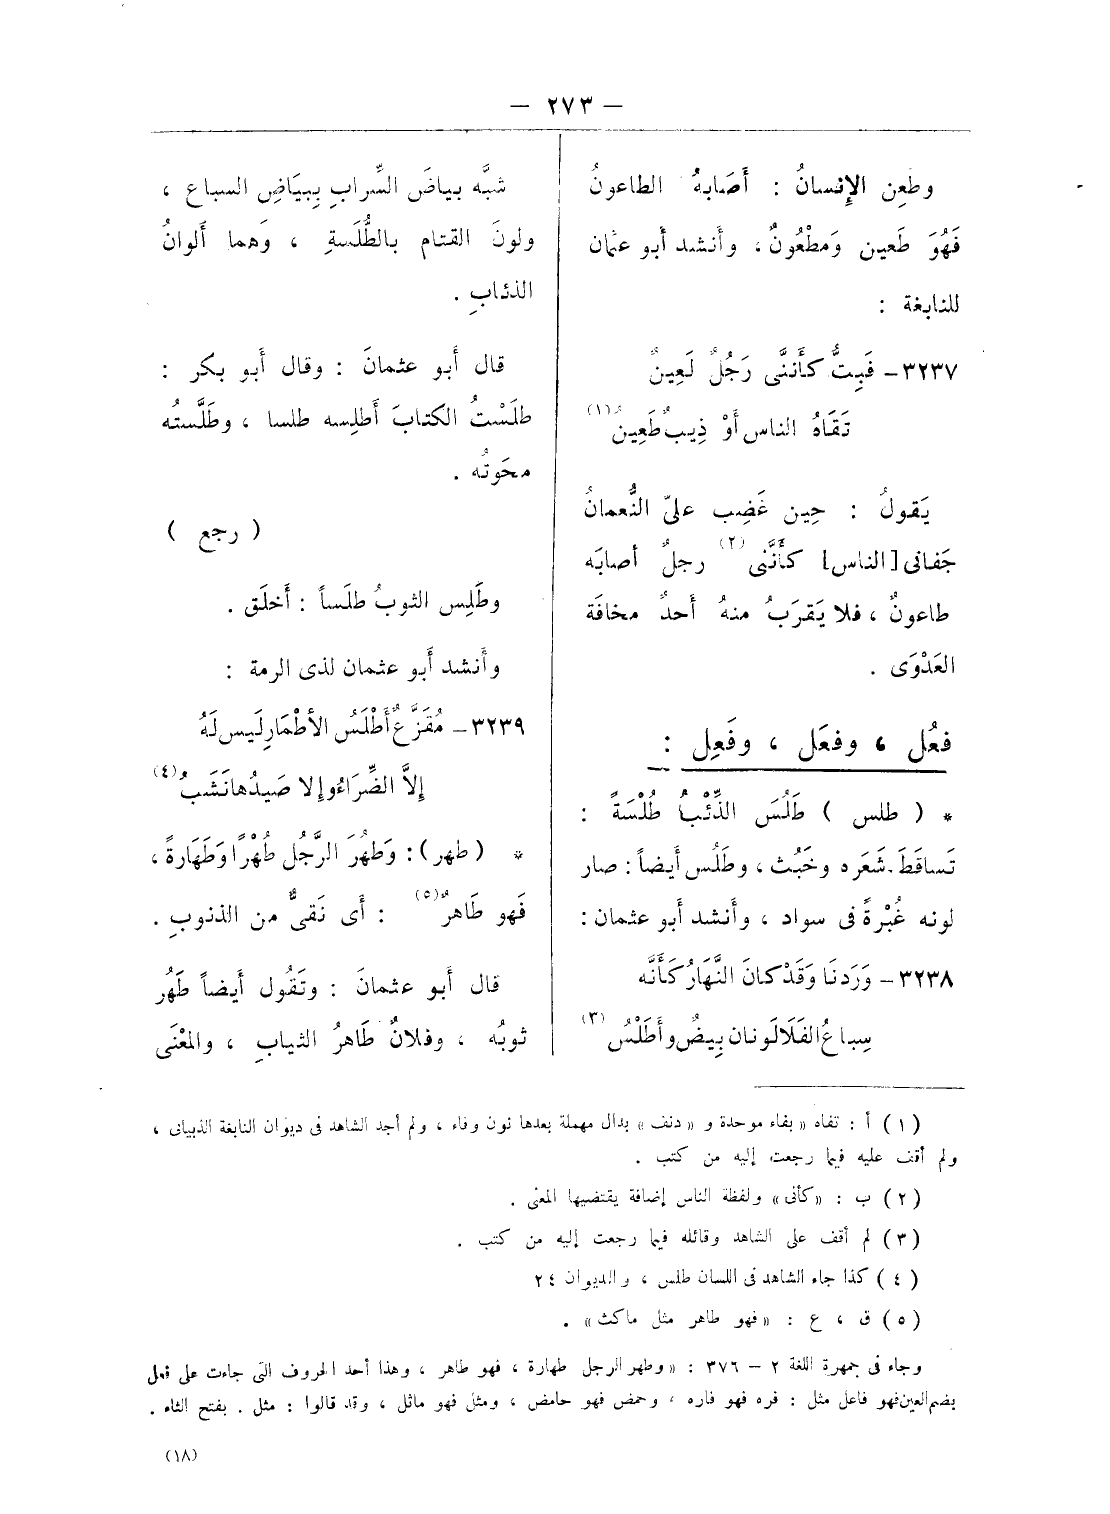 — ٢٧٣ —
وطعِن الإِنسانُ : أَصَابهُ الطاعونُ
فَهُوَ طَعين وَمطْعُونٌ ، وأَنشد أبو عثمان
للنابغة :
٣٢٣٧ - فَبِتُّ كأَننَّى رَجُلٌ لَعِينٌ
تَقَاهُ الناس أَوْ ذِيبٌ طَعِينُ (١)
يَقولُ : حِين غَضِب علىّ النُّعمانُ
جَفانى [الناس] كأَنَّنى (٢) رجلٌ أصابَه
طاعونٌ ، فلا يَقرَبُ منهُ أَحدٌ مخافَة
العَدْوَى .
فعُل ، وفعَل ، وفَعِل :
* ( طلس ) طَلُسَ الذِّئْبُ طُلْسَةً :
تَساقَطَ شَعَره وخَبُث ، وطَلُس أَيضاً : صار
لونه غُبْرةً فى سواد ، وأَنشد أبو عثمان :
٣٢٣٨ - وَرَدنَا وَقَدْ كانَ النَّهَارُ كَأَنَّه
سِباعُ الفَلَا لَونان بِيضٌ وأَطْلَسُ (٣)
شبَّه بياضَ السَّرابِ بِبيَاضِ السباع ،
ولونَ القتام بالطُّلَسةِ ، وَهما أَلوانُ
الذئابِ .
قال أَبو عثمانَ : وقال أَبو بكر :
طلَسْتُ الكتابَ أَطلِسه طلسا ، وطَلَّستُه
محَوتُه .
( رجع )
وطَلِس الثوبُ طلَساً : أَخلَق .
وأَنشد أَبو عثمان لذى الرمة :
٣٢٣٩ - مُقَزَّعٌ أَطْلَسُ الأَطْمَارِ لَيس لَهُ
إِلاَّ الضِّرَاءُ وإِلا صَيدُها نَشَبُ (٤)
* ( طهر ) : وَطهُرَ الرَّجُل طُهْرًا وَطَهَارةً ،
فَهو طَاهرٌ (٥) : أَى نَقىٌّ من الذنوبِ .
قال أَبو عثمانَ : وتَقُول أَيضاً طَهُر
ثوبُه ، وفلانٌ طَاهرُ الثيابِ ، والمعْنَى
(١) أ : تفاه « بفاء موحدة و « دنف » بدال مهملة بعدها نون وفاء ، ولم أجد الشاهد فى ديوان النابغة الذبيانى ،
ولم أقف عليه فيما رجعت إليه من كتب .
(٢) ب : « كأنى » ولفظة الناس إضافة يقتضيها المعنى .
(٣) لم أقف على الشاهد وقائله فيما رجعت إليه من كتب .
(٤) كذا جاء الشاهد فى اللسان طلس ، والديوان ٢٤
(٥) ق ، ع : « فهو طاهر مثل ماكث » .
وجاء فى جمهرة اللغة ٢ – ٣٧٦ : « وطهر الرجل طهارة ، فهو طاهر ، وهذا أحد الحروف التى جاءت على فعل
بضم العين فهو فاعل مثل : فره فهو فاره ، وحمض فهو حامض ، ومثل فهو ماثل ، وقد قالوا : مثل . بفتح الثاء .
(١٨)